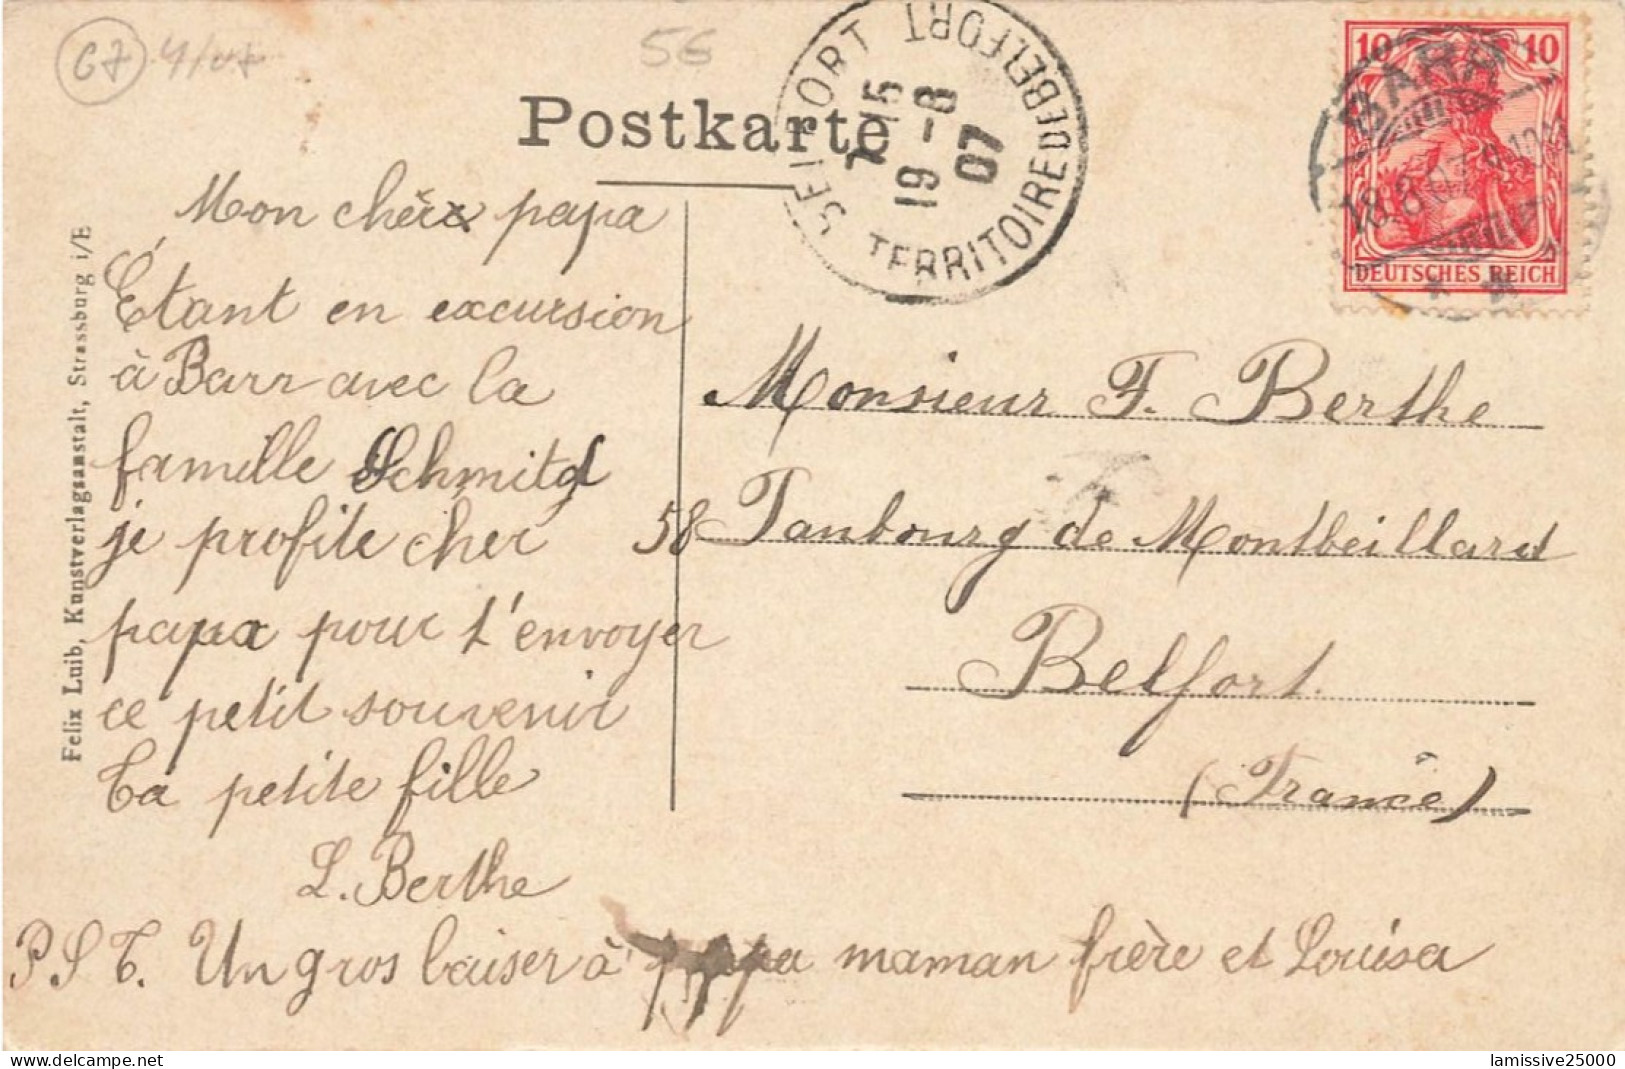 67 4/07
56
Postkarte
BELFORT TERRITOIRE DE BELFORT
7 15
19 - 8
07
10 10
BARR
18.8.07.
DEUTSCHES REICH
Mon cher papa
Étant en excursion
à Barr avec la
famille Schmitd
je profite cher
papa pour t'envoyer
ce petit souvenir
Ta petite fille
L. Berthe
P S T. Un gros baiser à papa maman frère et Louisa
Monsieur F. Berthe
58 Faubourg de Montbeillard
Belfort
(France)
Felix Luib, Kunstverlagsanstalt, Strassburg i/E
lamissive25000